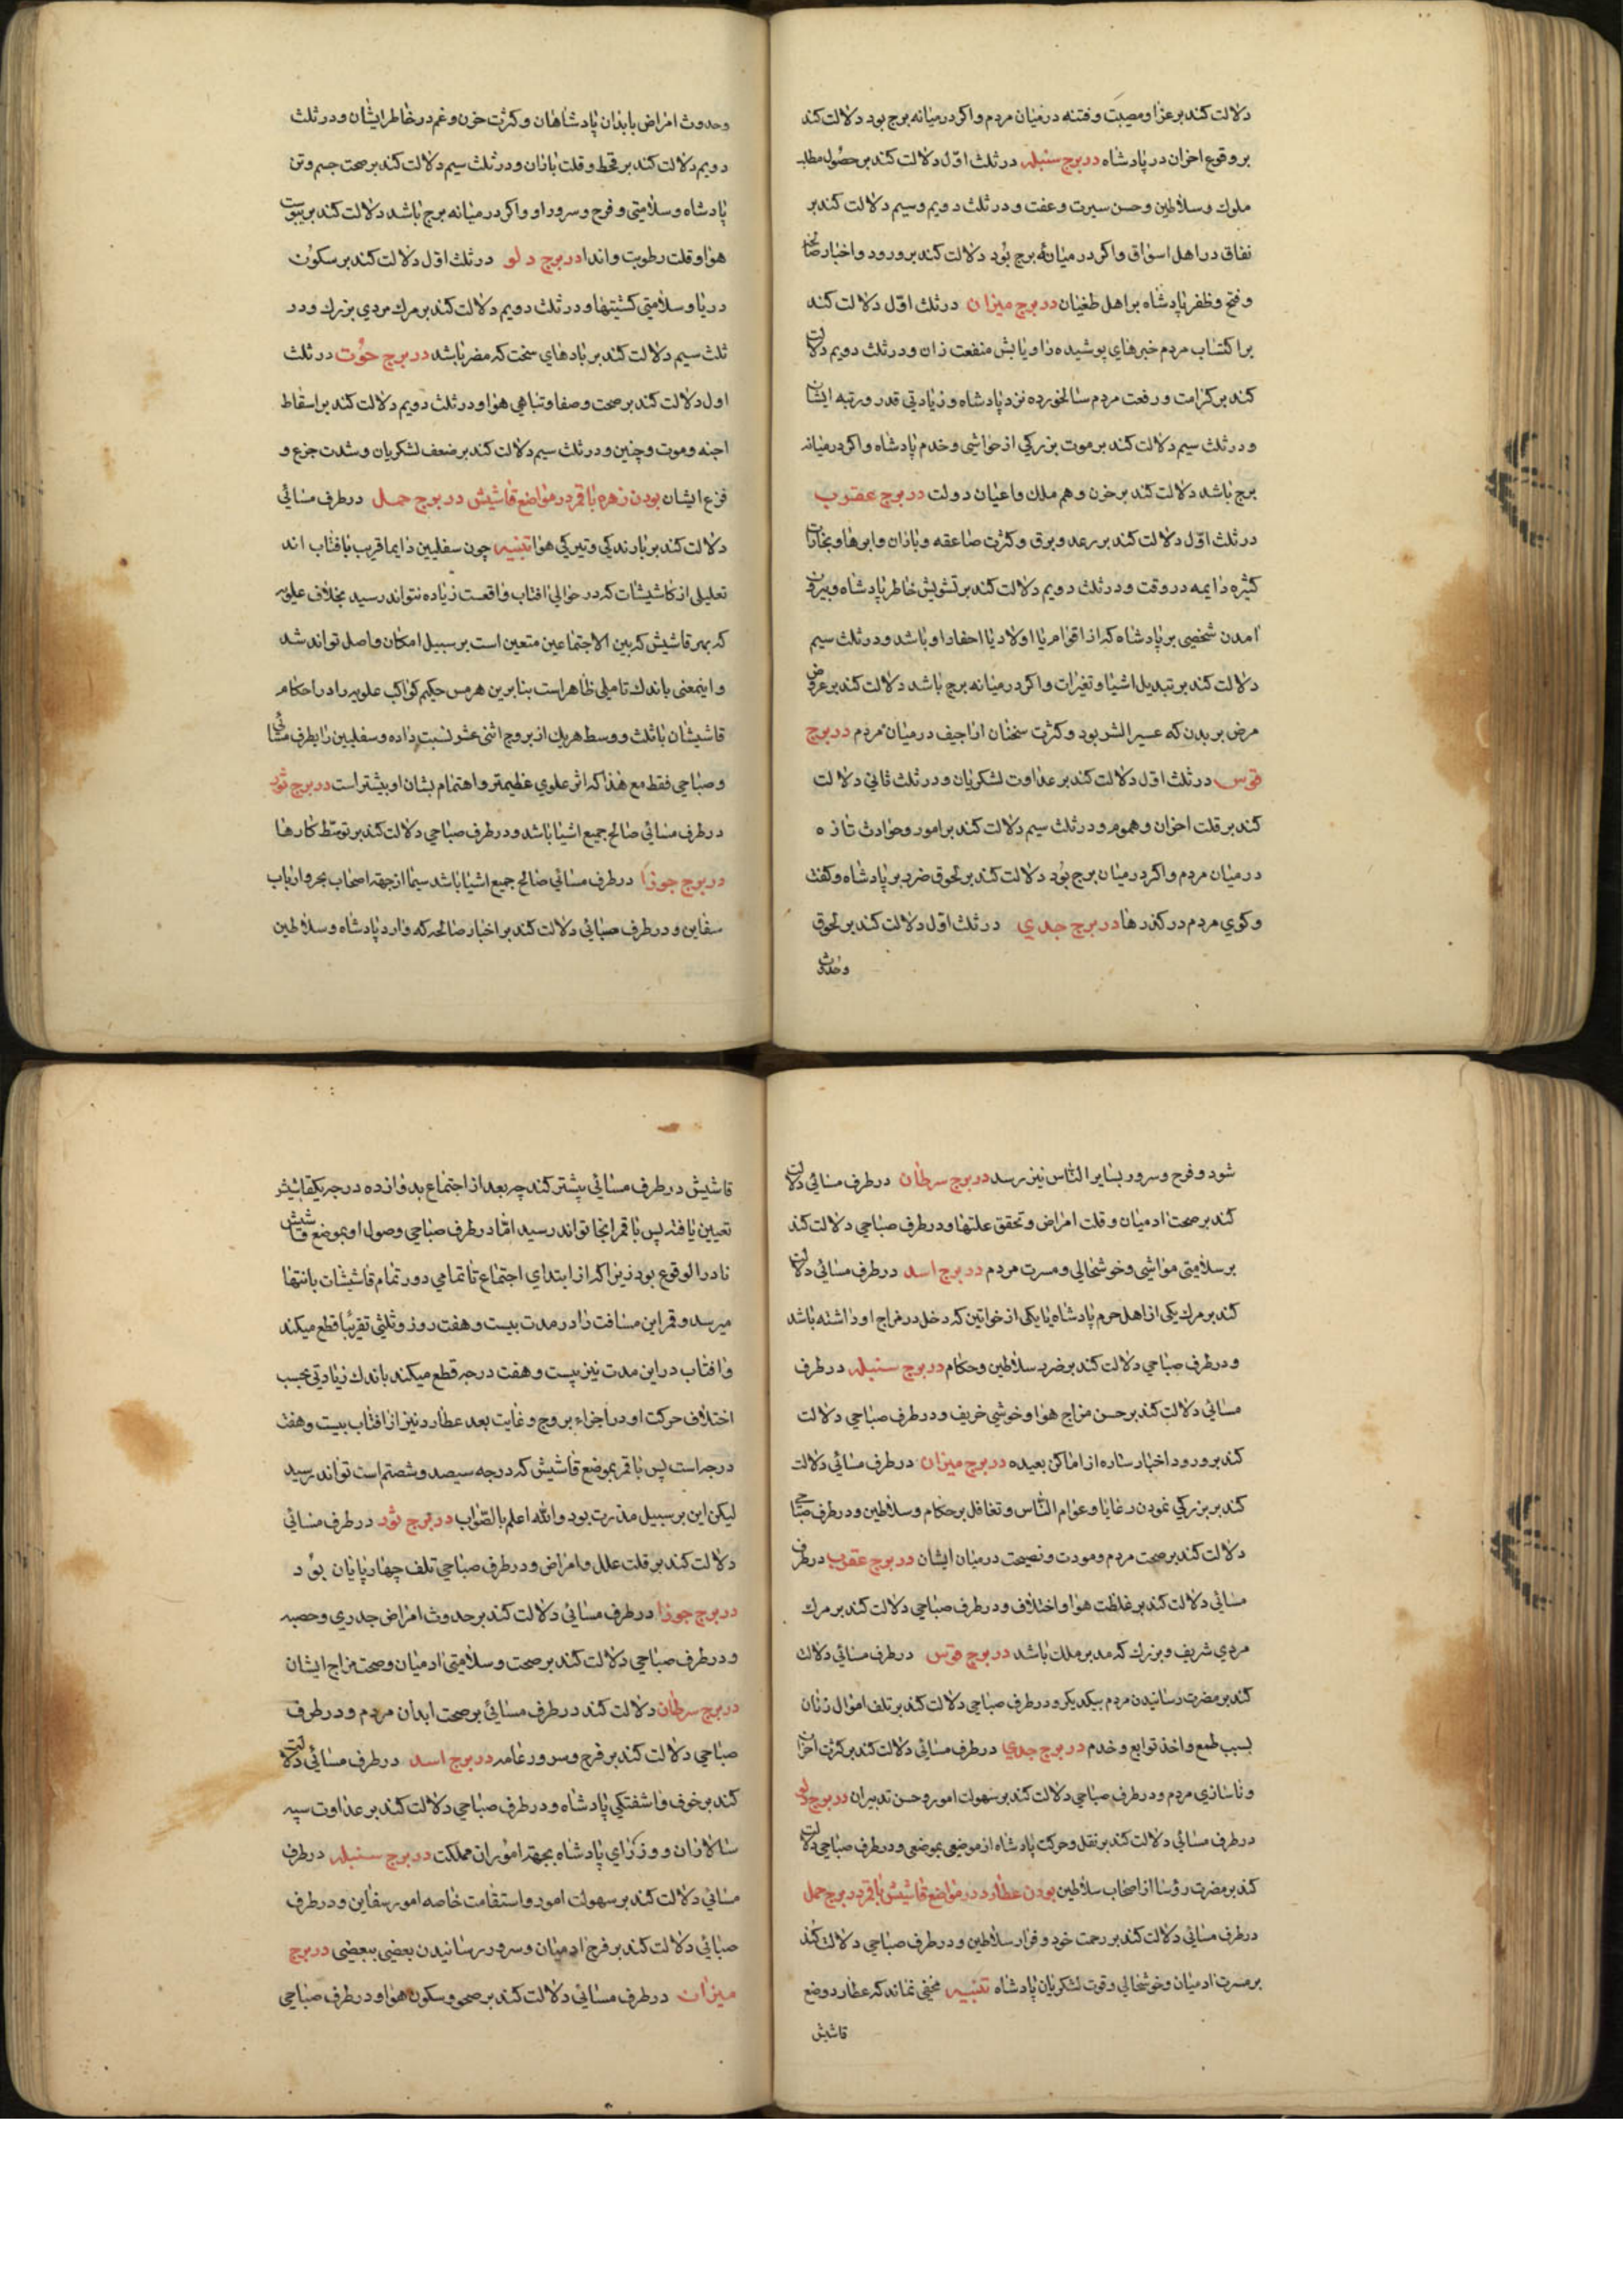 دلالت کند بر عزا و مصیبت و فتنه در میان مردم و اکر در میانه برج بود دلالت کند
بر وقوع احزان در پادشاه در برج سنبله در ثلث اوّل دلالت کند بر حصُول مطلب
ملوك و سلاطین و حسن سیرت و عفت و در ثلث دویم و سیم دلالت کند بر
نفاق در اهل اسواق و اکر در میانهٔ برج بُود دلالت کند بر ورود و اخبار صالحه
و فتح و ظفر پادشاه بر اهل طغیان در برج میزان در ثلث اوّل دلالت کند
بر اکتساب مردم خبرهای پوشیده را و یابش منفعت زان و در ثلث دویم دلالت
کند بر کرامت و رفعت مردم سالخورده نزد پادشاه و زیادتی قدر و رتبه ایشان
و در ثلث سیم دلالت کند بر موت بزرکی از حواشی و خدم پادشاه و اکر در میانه
برج باشد دلالت کند بر حزن و هم ملك و اعیان دولت در برج عقرب
در ثلث اوّل دلالت کند بر رعد و برق و کثرت صاعقه و باران و ابرها و بخارات
کثیره دایمه در وقت و در ثلث دویم دلالت کند بر تشویش خاطر پادشاه و بیرون
امدن شخصی بر پادشاه که از اقوام یا اولاد یا احفاد او باشد و در ثلث سیم
دلالت کند بر تبدیل اشیا و تغیرات و اکر در میانه برج باشد دلالت کند بر عروض
مرض بر بدن که عسیر البرء بود و کثرت سخنان اراجیف در میان مردم در برج
قوس در ثلث اوّل دلالت کند بر عداوت لشکریان و در ثلث ثانی دلالت
کند بر قلت احزان و هموم و در ثلث سیم دلالت کند بر امور و حوادث تازه
در میان مردم و اکر در میان برج بُود دلالت کند بر لحوق ضرر بر پادشاه و کفت
و کوی مردم در کذرها در برج جدی در ثلث اوّل دلالت کند بر لحوق
وحدوث
وحدوث امراض بابدان پادشاهان و کثرت حزن و غم در خاطر ایشان و در ثلث
دویم دلالت کند بر قحط و قلت باران و در ثلث سیم دلالت کند بر صحت جسم و تن
پادشاه و سلامتی و فرح و سرور او و اکر در میانه برج باشد دلالت کند بر یبوست
هوا و قلت رطوبت و اندا در برج دلو در ثلث اوّل دلالت کند بر سکون
دریا و سلامتی کشتیها و در ثلث دویم دلالت کند بر مرك مردی بزرك و در
ثلث سیم دلالت کند بر بادهای سخت که مضر باشد در برج حُوت در ثلث
اول دلالت کند بر صحت و صفا و تباهی هوا و در ثلث دویم دلالت کند بر اسقاط
اجنه و موت و چنین و در ثلث سیم دلالت کند بر ضعف لشکریان و شدت جزع و
فزع ایشان بودن زهره با قمر در مواضع قاشیش در برج حمل در طرف مسائی
دلالت کند بر بارندکی و تیرکی هوا تنبیه چون سفلیین دایما قریب بافتاب اند
تعلیلی از کاشیشات که در حوالی افتاب واقعست زیاده نتواند رسید بخلاف علویه
که بهر قاشیش که بین الاجتماعین متعین است بر سبیل امکان واصل تواند شد
و اینمعنی باندك تاملی ظاهر است بنا برین هرمس حکیم کواکب علویه را در احکام
قاشیشان باثلث و وسط هریك از بروج اثنی عشر نسبت داده و سفلیین را بطرف مسائی
و صباحی فقط مع هذا که اثر علوی عظیمتر و اهتمام بشان او بیشتر است در برج ثور
در طرف مسائی صالح جمیع اشیا باشد و در طرف صباحی دلالت کند بر توسّط کارها
در برج جوزا در طرف مسائی صالح جمیع اشیا باشد سیما از جهة اصحاب بحر و ارباب
سفاین و در طرف صبائی دلالت کند بر اخبار صالحه که وارد پادشاه و سلاطین
شود و فرح و سرور بسایر النّاس نیز رسد در برج سرطان در طرف مسائی دلالت
کند بر صحت ادمیان و قلت امراض و تحقق علتها و در طرف صباحی دلالت کند
بر سلامتی مواشی و خوشحالی و مسرت مردم در برج اسد در طرف مسائی دلالت
کند بر مرك یکی از اهل حرم پادشاه یا یکی از خواتین که دخل در مزاج او داشته باشد
و در طرف صباحی دلالت کند بر ضرر سلاطین و حکام در برج سنبله در طرف
مسائی دلالت کند بر حسن مزاج هوا و خوشی خریف و در طرف صباحی دلالت
کند بر ورود اخبار ساره از اماکن بعیده در برج میزان در طرف مسائی دلالت
کند بر بزرکی نمودن رعایا و عوام النّاس و تغافل بر حکام و سلاطین و در طرف صباحی
دلالت کند بر صحت مردم و مودت و نصیحت در میان ایشان در برج عقرب در طرف
مسائی دلالت کند بر غلظت هوا و اختلاف و در طرف صباحی دلالت کند بر مرك
مردی شریف و بزرك که مدبر ملك باشد در برج قوس در طرف مسائی دلالت
کند بر مضرت رسانیدن مردم بیکدیکر و در طرف صباحی دلالت کند بر تلف اموال زنان
بسبب طمع و اخذ توابع و خدم در برج جدی در طرف مسائی دلالت کند بر کثرت احزان
و ناسازی مردم و در طرف صباحی دلالت کند بر سهولت امور و حسن تدبیران در برج دلو
در طرف مسائی دلالت کند بر نقل و حرکت پادشاه از موضعی بموضعی و در طرف صباحی دلالت
کند بر مضرت رؤسا از اصحاب سلاطین بودن عطارد در مواضع قاشیش با قمر در برج حمل
در طرف مسائی دلالت کند بر رحمت خود و قرار سلاطین و در طرف صباحی دلالت کند
بر مسرت ادمیان و خوشحالی و قوت لشکریان پادشاه تنبیه مخفی نماند که عطارد وضع
قاشیش
قاشیش در طرف مسائی بیشتر کند چه بعد از اجتماع بدوازده درجه یکقاشیش
تعیین یافته پس با قمر انجا تواند رسید امّا در طرف صباحی وصول او بموضع قاشیش
نادر الوقوع بود زیرا که از ابتدای اجتماع تا تمامی دور تمام قاشیشات بانتها
میرسد و قمر این مسافت را در مدت بیست و هفت روز و ثلثی تقریبًا قطع میکند
و افتاب در این مدت نیز بیست و هفت درجه قطع میکند باندك زیادتی بحسب
اختلاف حرکت او در اجزاء بروج و غایت بعد عطارد نیز از افتاب بیست و هفت
درجه است پس با قمر بموضع قاشیش که درجه سیصد و شصتم است تواند رسید
لیکن این بر سبیل مذرت بود و الله اعلم بالصّواب در برج ثور در طرف مسائی
دلالت کند بر قلت علل و امراض و در طرف صباحی تلف چهارپایان بود
در برج جوزا در طرف مسائی دلالت کند بر حدوث امراض جدری و حصبه
و در طرف صباحی دلالت کند بر صحت و سلامتی ادمیان و صحت مزاج ایشان
در برج سرطان دلالت کند در طرف مسائی بر صحت ابدان مردم و در طرف
صباحی دلالت کند بر فرح و سرور عامه در برج اسد در طرف مسائی دلالت
کند بر خوف و اشفتکی پادشاه و در طرف صباحی دلالت کند بر عداوت سپه
سالاران و وزرای پادشاه بجهة امُوران مملکت در برج سنبله در طرف
مسائی دلالت کند بر سهولت امور و استقامت خاصه امور سفاین و در طرف
صبائی دلالت کند بر فرح ادمیان و سرور رسانیدن بعضی ببعضی در برج
میزان در طرف مسائی دلالت کند بر صحو و سکون هوا و در طرف صباحی